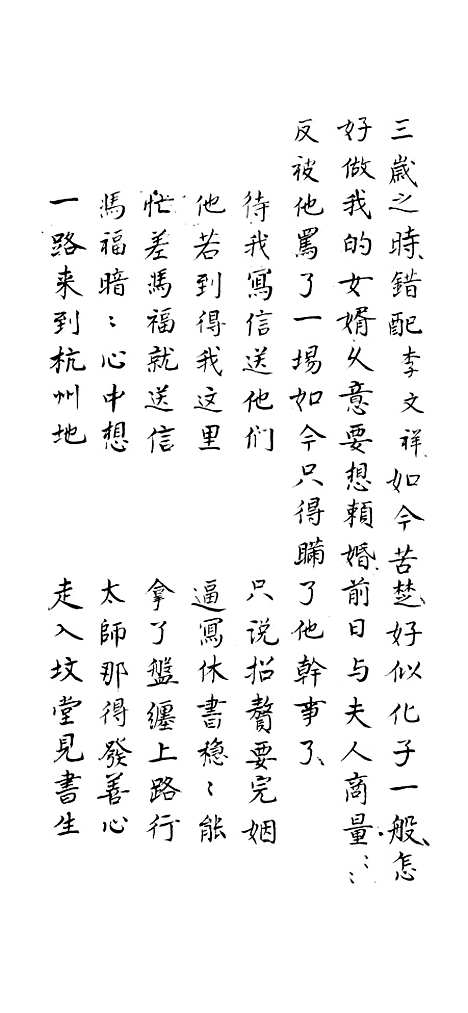 三歲之時、錯配李文祥、如今苦楚、好似化子一般、怎
好做我的女婿、乂意要想頼婚、前日与夫人商量：：
反被他罵了一場如今只得瞞了他幹事了、
待我寫信送他们　只说招贅要完姻
他若到得我这里　逼寫休書穏〻能
忙差馮福就送信　拿了盤纏上路行
馮福暗〻心中想　太師那得發善心
一路来到杭州地　走入坟堂見書生